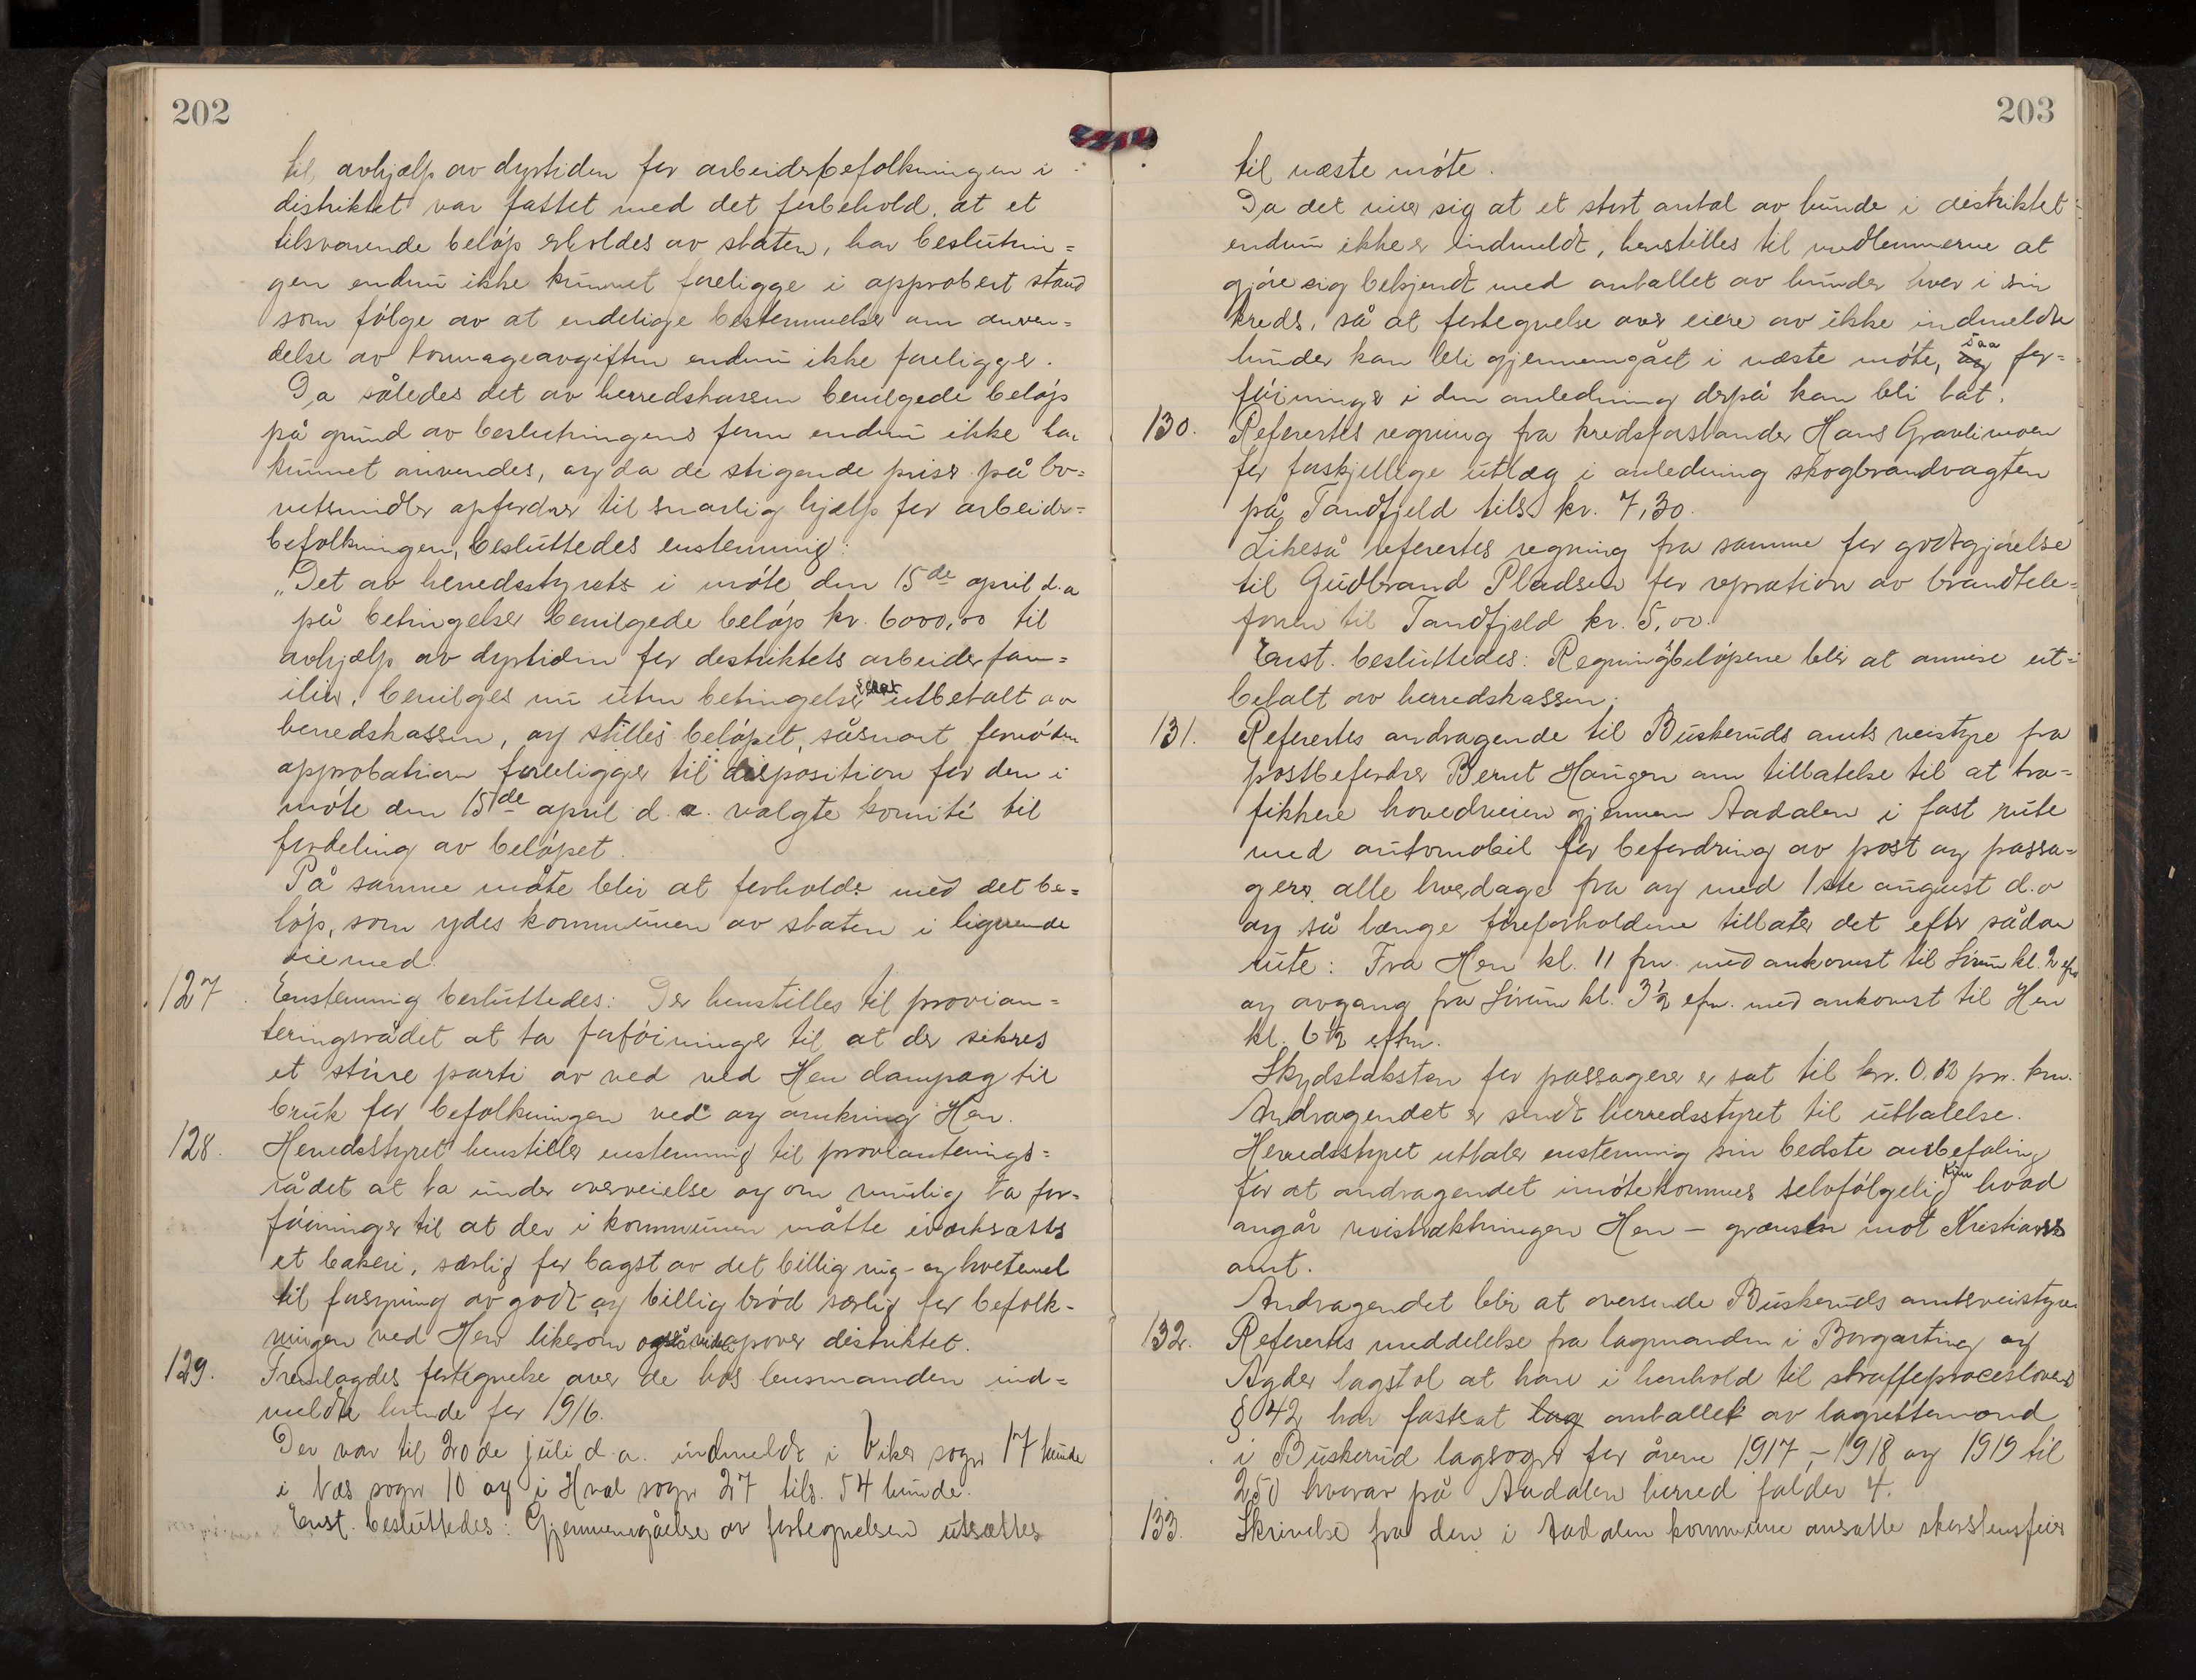 202
til avhjælp av dyrtiden for arbeiderbefolkningen i
distriktet var fattet med det forbehold, at et
tilsvarende beløp erholdes av staten, har beslutnin=
gen endnu ikke kunnet foreligge i approbert stand
som følge av at endelige bestemmelser om anven=
delse av tonnageavgiften endnu ikke foreligger.
Da således det av herredskassen bevilgede beløp
på grund av beslutningens form endnu ikke har
kunnet anvendes, og da de stigende priser på le=
vetsmidler opfordrer til snarlig hjælp for arbeider=
befolkningen, besluttedes enstemmig:
„Det av herredsstyrets i møte den 15de april d.a
på betingelser bevilgede beløp kr. 6000,00 til
avhjælp av dyrtiden for distriktets arbeiderfam=
ilier, bevilges nu uten betingelser straks utbetalt av
herredskassen, og stilles beløpet, såsnart fornøden
approbation foreligger til disposition for den i
møte den 15de april d.a. valgte komité til
fordeling av beløpet.
På samme måte blir at forholde med det be=
løp, som ydes kommunen av staten i lignende
øiemed.
127. Enstemmig besluttedes: Der henstilles til provian=
teringsrådet at ta forføininger til at der sikres
et større parti av ved ved Hen dampsag til
bruk for befolkningen ved og omkring Hen.
128. Herredsstyret henstiller enstemmig til provianterings=
rådet at ta under overveielse og om mulig ta for=
føininger til at der i kommunen måtte iverksættes
et bakeri, særlig for bagst av det billig rug- og hvetemel
til forsyning av godt og billig brød særlig for befolk=
ningen ved Hen likesom også videre opover distriktet.
129. Fremlagdes fortegnelse over de hos lensmanden ind=
meldte hunde for 1916.
Der var til 20de juli d.a. indmeldt i Viker sogn 17 hunde
i Nes sogn 10 og i Hval sogn 27 tils. 54 hunde.
Enst. besluttedes: Gjennemgåelse av fortegnelsen utsættes
203
til næste møte.
Da det viser sig at et stort antal av hunde i distriktet
endnu ikke er indmeldt, henstilles til medlemmerne at
gjøre sig bekjendt med antallet av hunder hver i sin
kreds, så at fortegnelse over eiere av ikke indmeldte
hunder kan bli gjennemgået i næste møte, og saa for=
føininger i den anledning derpå kan bli tat.
130. Refertes regning fra kredsforstander Hans Gravlimoen
for forskjellige utlæg i anledning skogbrandvagten
på Tandfjeld tils. kr. 7,30.
Likeså refertes regning fra samme for godtgjørelse
til Gudbrand Pladsen for repration av brandtele=
fonen til Tandfjeld kr. 5,00.
Enst. besluttedes: Regningsbeløpene blir at anvise ut=
betalt av herredskassen.
131. Refertes andragende til Buskeruds amts veistyre fra
postbefordrer Bernt Haugen om tillatelse til at tra=
fikkere hovedveien gjennem Aadalen i fast rute
med automobil for befordring av post og passa=
gerer alle hverdage fra og med 1ste august d.a
og så længe føreforholdene tillater det efter sådan
rute: Fra Hen kl. 11 fm. med ankomst til Sørum kl. 2 efm
og avgang fra Sørum kl. 3½ efm. med ankomst til Hen
kl. 6½ eftm.
Skydstaksten for passagerer er sat til kr. 0.12 pr. km.
Andragendet er sendt herredsstyret til uttalelse.
Herredsstyret uttaler enstemmig sin bedste anbefaling
for at andragendet imøtekommes selvfølgelig kun hvad
angår veistrækningen Hen – grænsen mot Kristians
amt.
Andragendet blir at oversende Buskeruds amtsveistyre
132. Refertes meddelelse fra lagmanden i Borgarting og
Agder lagstol at han i henhold til straffeproceslovens
§ 42 har fastsat lag antallet av lagrettemænd
i Buskerud lagsogn for årene 1917, – 1918 og 1919 til
250 hvorav på Aadalen herred falder 4.
133. Skrivelse fra den i Aadalen kommune ansatte skorstensfeier